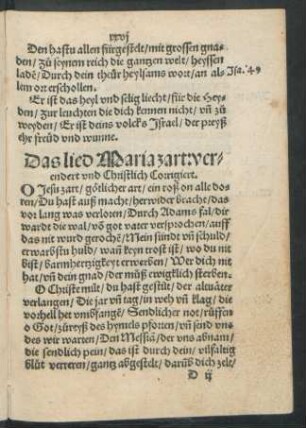 xxvj
Den hastu allen fürgestelt/ mit grossen gna-
den/ zů seynem reich die gantzen welt/ heyssen
ladē/ Durch dein theür heylsams wort/ an al-
lem ort erschollen.
Isa. 49
Er ist das heyl vnd selig liecht/ für die Hey-
den/ Zur leuchten die dich kennen nicht/ vñ zů
weyden/ Er ist deins volcks Israel/ der preyß
ehr freüd vnd wunne.
Das lied Maria zart: ver-
endert vnd Christlich Corrigiert.
O Jesu zart/ götlicher art/ ein roß on alle dor-
ren/ Du hast auß macht/ herwider bracht/ das
vor lang was verloren/ Durch Adams fal/ dir
wardt die wal/ võ got vater versprochen/ auff
das nit wurd gerochē/ Mein sündt vñ schuld/
erwarbstu huld/ wañ keyn trost ist/ wo du nit
bist/ barmhertzigkeyt erwerben/ Wer dich nit
hat/ vñ dein gnad/ der můß ewigtlich sterben.
O Christe milt/ du hast gestilt/ der altuäter
verlangen/ Die jar vñ tag/ in weh vñ klag/ die
vorhell het vmbfangē/ Sendlicher not/ rüffen
o Got/ zůreyß des hymels pforten/ vñ send vns
des wir warten/ Den Messiā/ der vns abnam/
die sendlich pein/ das ist durch dein/ vilfaltig
blůt verreren/ gantz abgestelt/ darũb dich zelt/
D ij